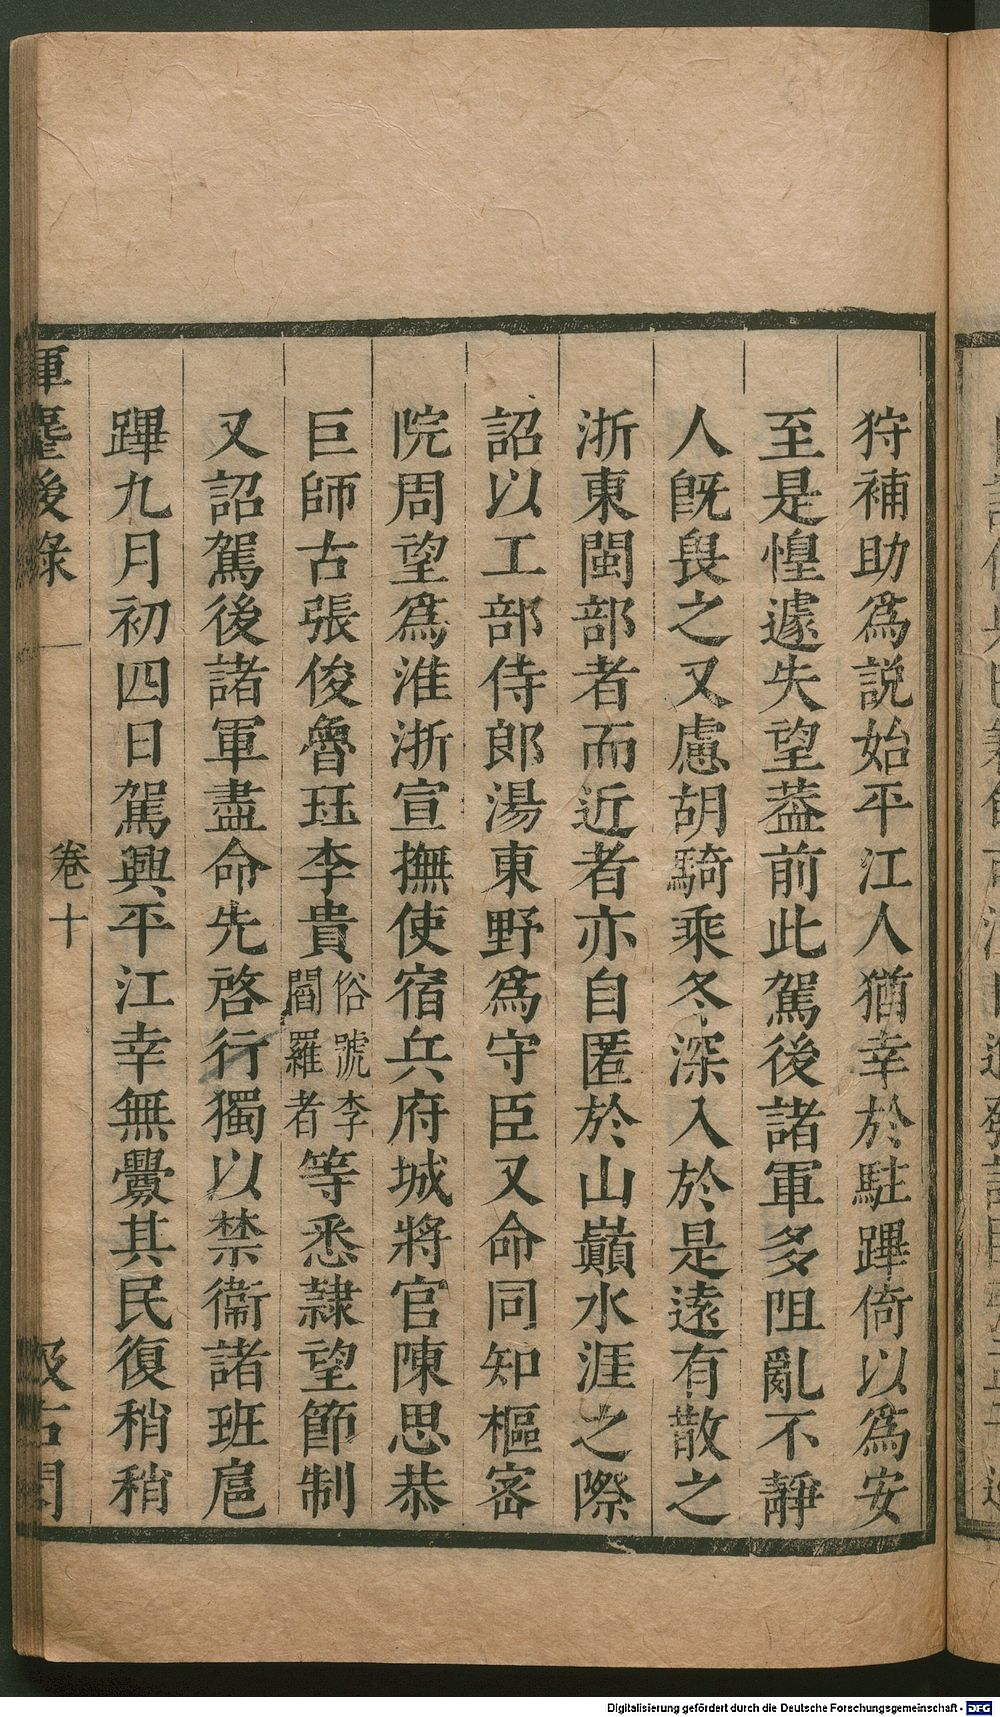 狩補助爲説始平江人猶幸於駐蹕倚以爲安
至是惶遽失望葢前此駕後諸軍多阻亂不靜
人旣畏之又慮胡騎乘冬深入於是遠有散之
浙東閩部者而近者亦自匿於山巔水涯之際
詔以工部侍郎湯東野爲守臣又命同知樞密
院周望爲淮浙宣撫使宿兵府城將官陳思恭
巨師古張俊魯珏李貴俗號李閻羅者等悉隷望節制
又詔駕後諸軍盡命先啓行獨以禁衞諸班扈
蹕九月初四日駕興平江幸無釁其民復稍稍
揮麈後錄
卷十
汲古閣
Digitalisierung gefördert durch die Deutsche Forschungsgemeinschaft - DFG